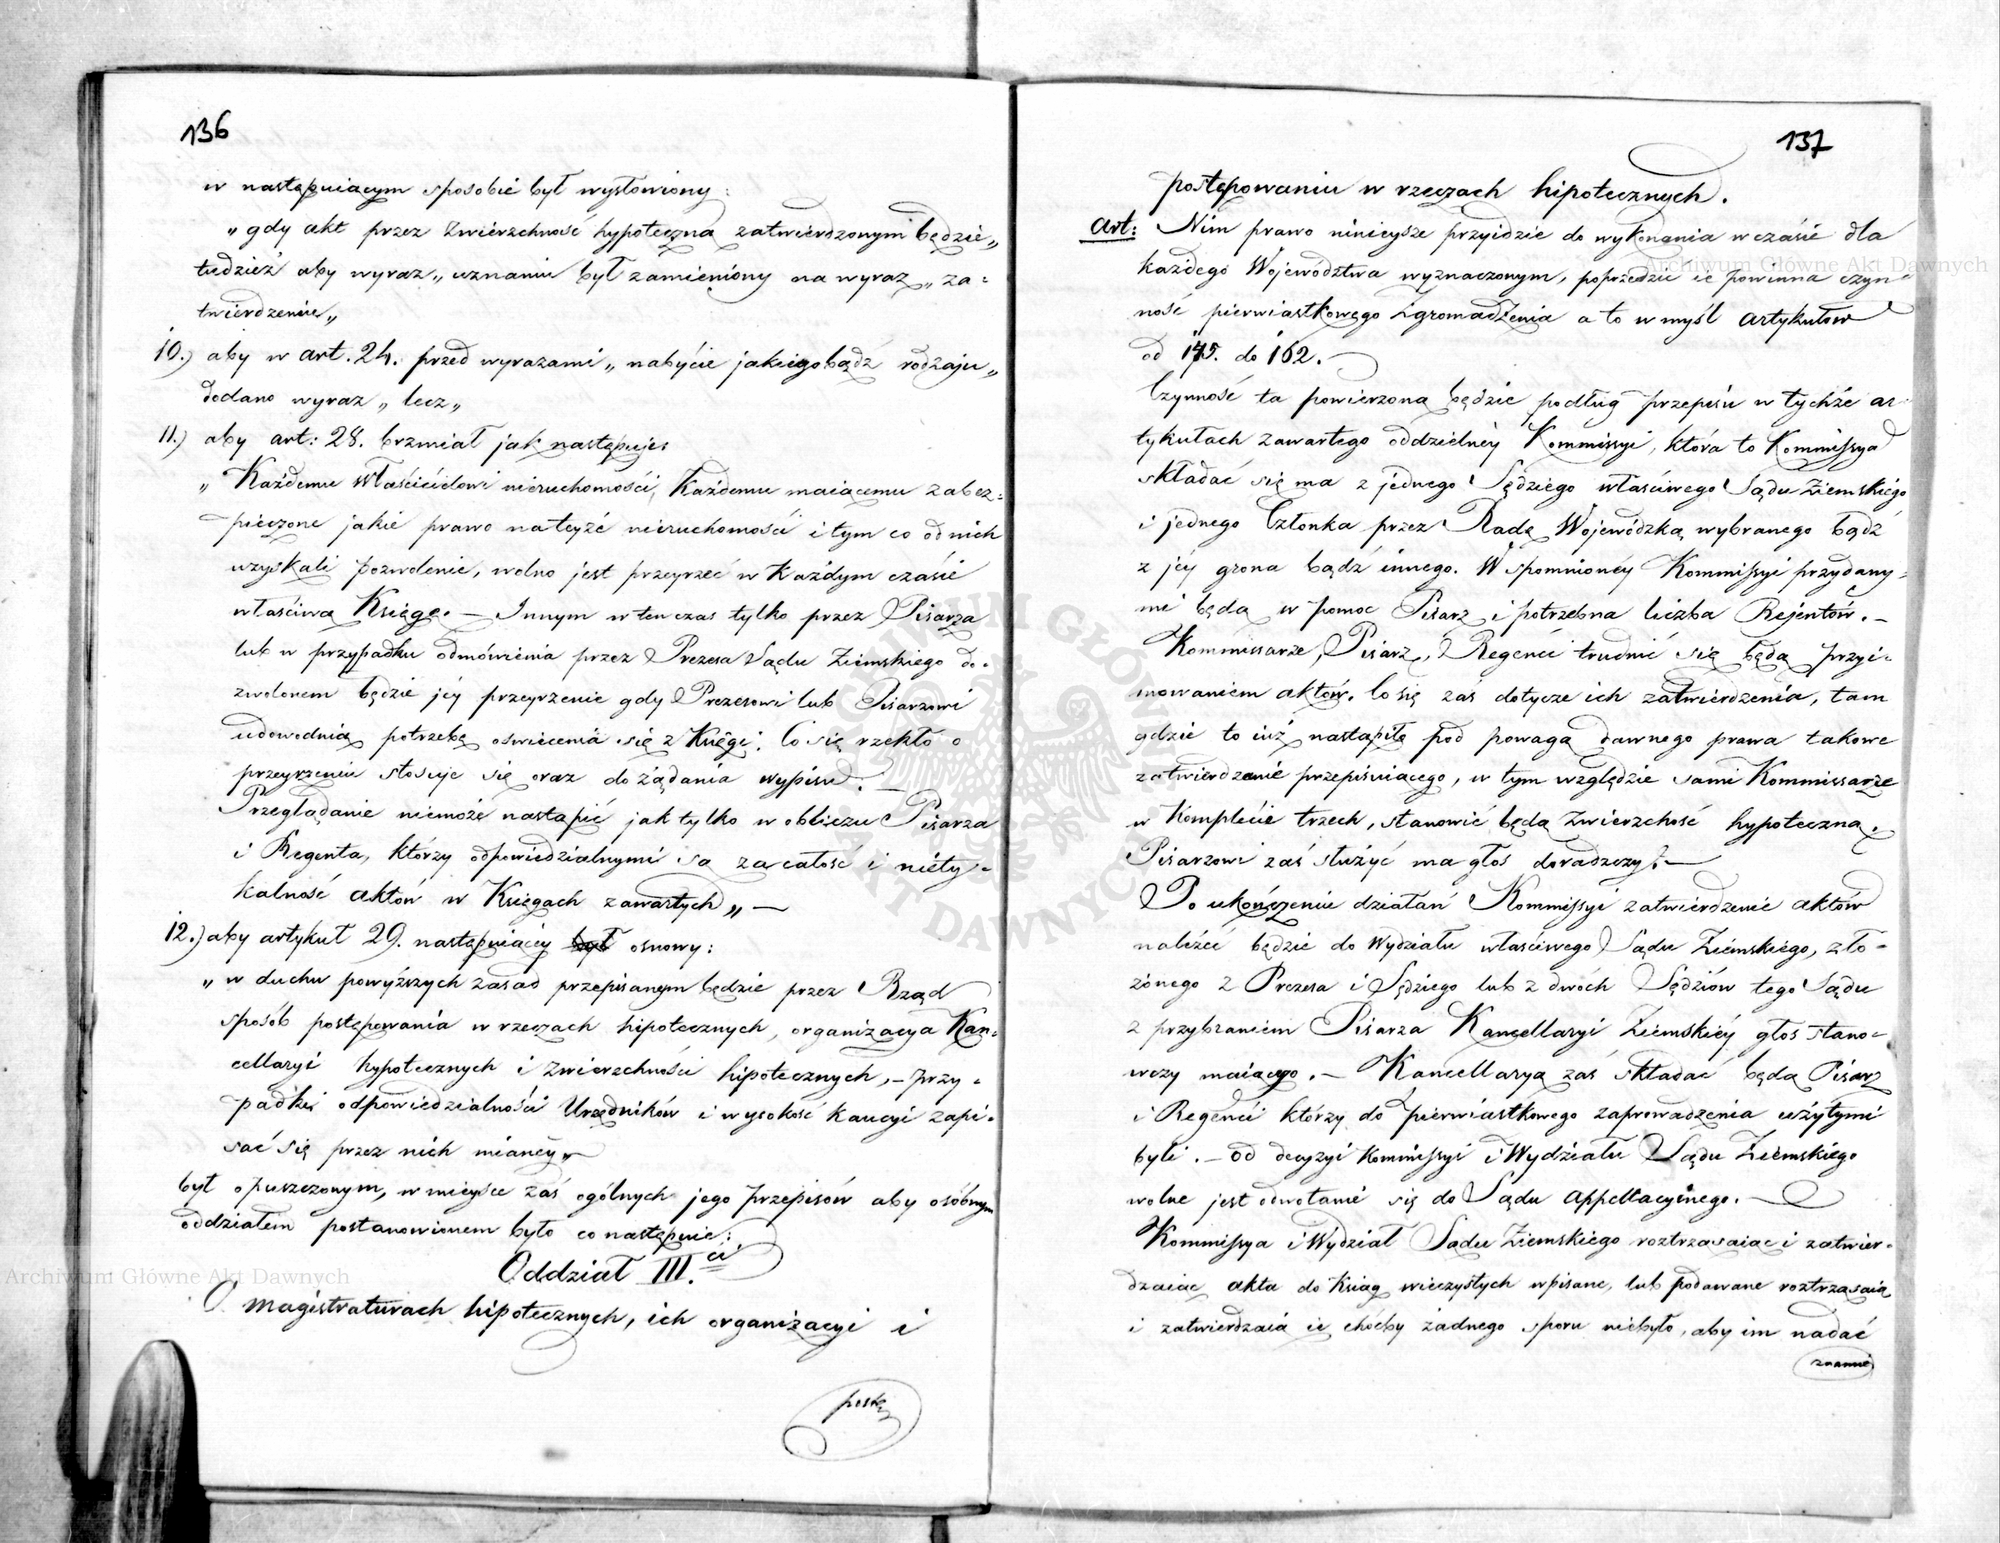 136
w następuiącym sposobie był wysłowiony:
„gdy akt przez Zwierzchność hypoteczną zatwierdzonym będzie„
tudzież aby wyraz „uznaniu był zamieniony na wyraz „za-
twierdzenie„
10.) aby w art. 24. przed wyrazami „nabycie jakiegobądź rodzaju„
dodano wyraz „lecz„
11.) aby art: 28. brzmiał jak następuje:
„Każdemu Właścicielowi nieruchomości, Każdemu maiącemu zabez-
pieczone jakie prawo na teyże nieruchomości i tym co od nich
uzyskali pozwolenie, wolno jest przeyrzeć w Każdym czasie
właściwą Księgę. — Innym w ten czas tylko przez Pisarza
lub w przypadku odmówienia przez Prezesa Sądu Ziemskiego do-
zwolonem będzie jéy przeyrzenie gdy Prezesowi lub Pisarzowi
udowodnią potrzebę oświecenia się z Księgi. Co się rzekło o
przeyrzeniu stosuje się oraz do żądania wypisu. —
Przeglądanie niemoże nastąpić jak tylko w obliczu Pisarza
i Regenta, którzy odpowiedzialnymi są za całość i niety-
kalność aktów w Księgach zawartych„ —
12.) aby artykuł 29. następuiącéy był osnowy:
„w duchu powyższych zasad przepisanym będzie przez Rząd
sposób postępowania w rzeczach hipotecznych, organizacya Kan-
cellaryi hypotecznych i zwierzchności hipotecznych, — przy-
padki odpowiedzialności Urzędników i wysokość kaucyi zapi-
sać się przez nich mianéy„
był opuszczonym, w mieysce zaś ogólnych jego przepisów aby osóbnym
oddziałem postanowionem było co następuie:
Oddział III.ci
O magistraturach hipotecznych, ich organizacyi i
postę
137
postępowaniu w rzeczach hipotecznych.
Art: Nim prawo ninieysze przyidzie do wykonania w czasie dla
każdego Województwa wyznaczonym, poprzedzić ie powinna czyn-
ność pierwiastkowego Zgromadzenia a to w myśl artykułów
od 145. do 162. —
Czynność ta powierzoną będzie podług przepisu w tychże ar-
tykułach zawartego oddzielnéy Kommissyi, która to Kommissya
składać się ma z jednego Sędziego właściwego Sądu Ziemskiego
i jednego Członka przez Radę Wojewódzką wybranego bądź
z jéy grona bądź innego. Wspomnionéy Kommissyi przydany-
mi będą w pomoc Pisarz i potrzebna liczba Rejentów. —
Kommissarze, Pisarz, Regenci trudnić się będą przyi-
mowaniem aktów. Co się zaś dotycze ich zatwierdzenia, tam
gdzie to iuż nastąpiło pod powagą dawnego prawa takowe
zatwierdzenie przepisuiącego, w tym względzie sami Kommissarze
w Komplecie trzech, stanowić będą Zwierzchność hypoteczną.
Pisarzowi zaś służyć ma głos doradczy. —
Po ukończeniu działań Kommissyi zatwierdzenie aktów
należeć będzie do Wydziału właściwego Sądu Ziemskiego, zło-
żonego z Prezesa i Sędziego lub z dwóch Sędziów tego Sądu
z przybraniem Pisarza Kancellaryi Ziemskiéy głos stano-
wczy maiącego. — Kancellaryą zaś składać będą Pisarz
i Regenci którzy do pierwiastkowego zaprowadzenia użytymi
byli. — Od decyzyi Kommissyi i Wydziału Sądu Ziemskiego
wolne jest odwołanie się do Sądu Appellacyinego. —
Kommissya i Wydział Sądu Ziemskiego roztrząsaiąc i zatwier-
dzaiąc akta do Ksiąg wieczystych wpisane, lub podawane roztrząsaią
i zatwierdzaią ie choćby żadnego sporu niebyło, aby im nadać
znamie
Archiwum Główne Akt Dawnych
Archiwum Główne Akt Dawnych
ARCHIWUM GŁÓWNE AKT DAWNYCH